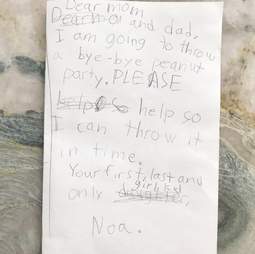 Dear mom
Dear mo and dad,
I am going to throw
a bye-bye peanut
party. PLEASE
help so
I can throw it
in time.
Your first, last and
only girl kid
Noa.